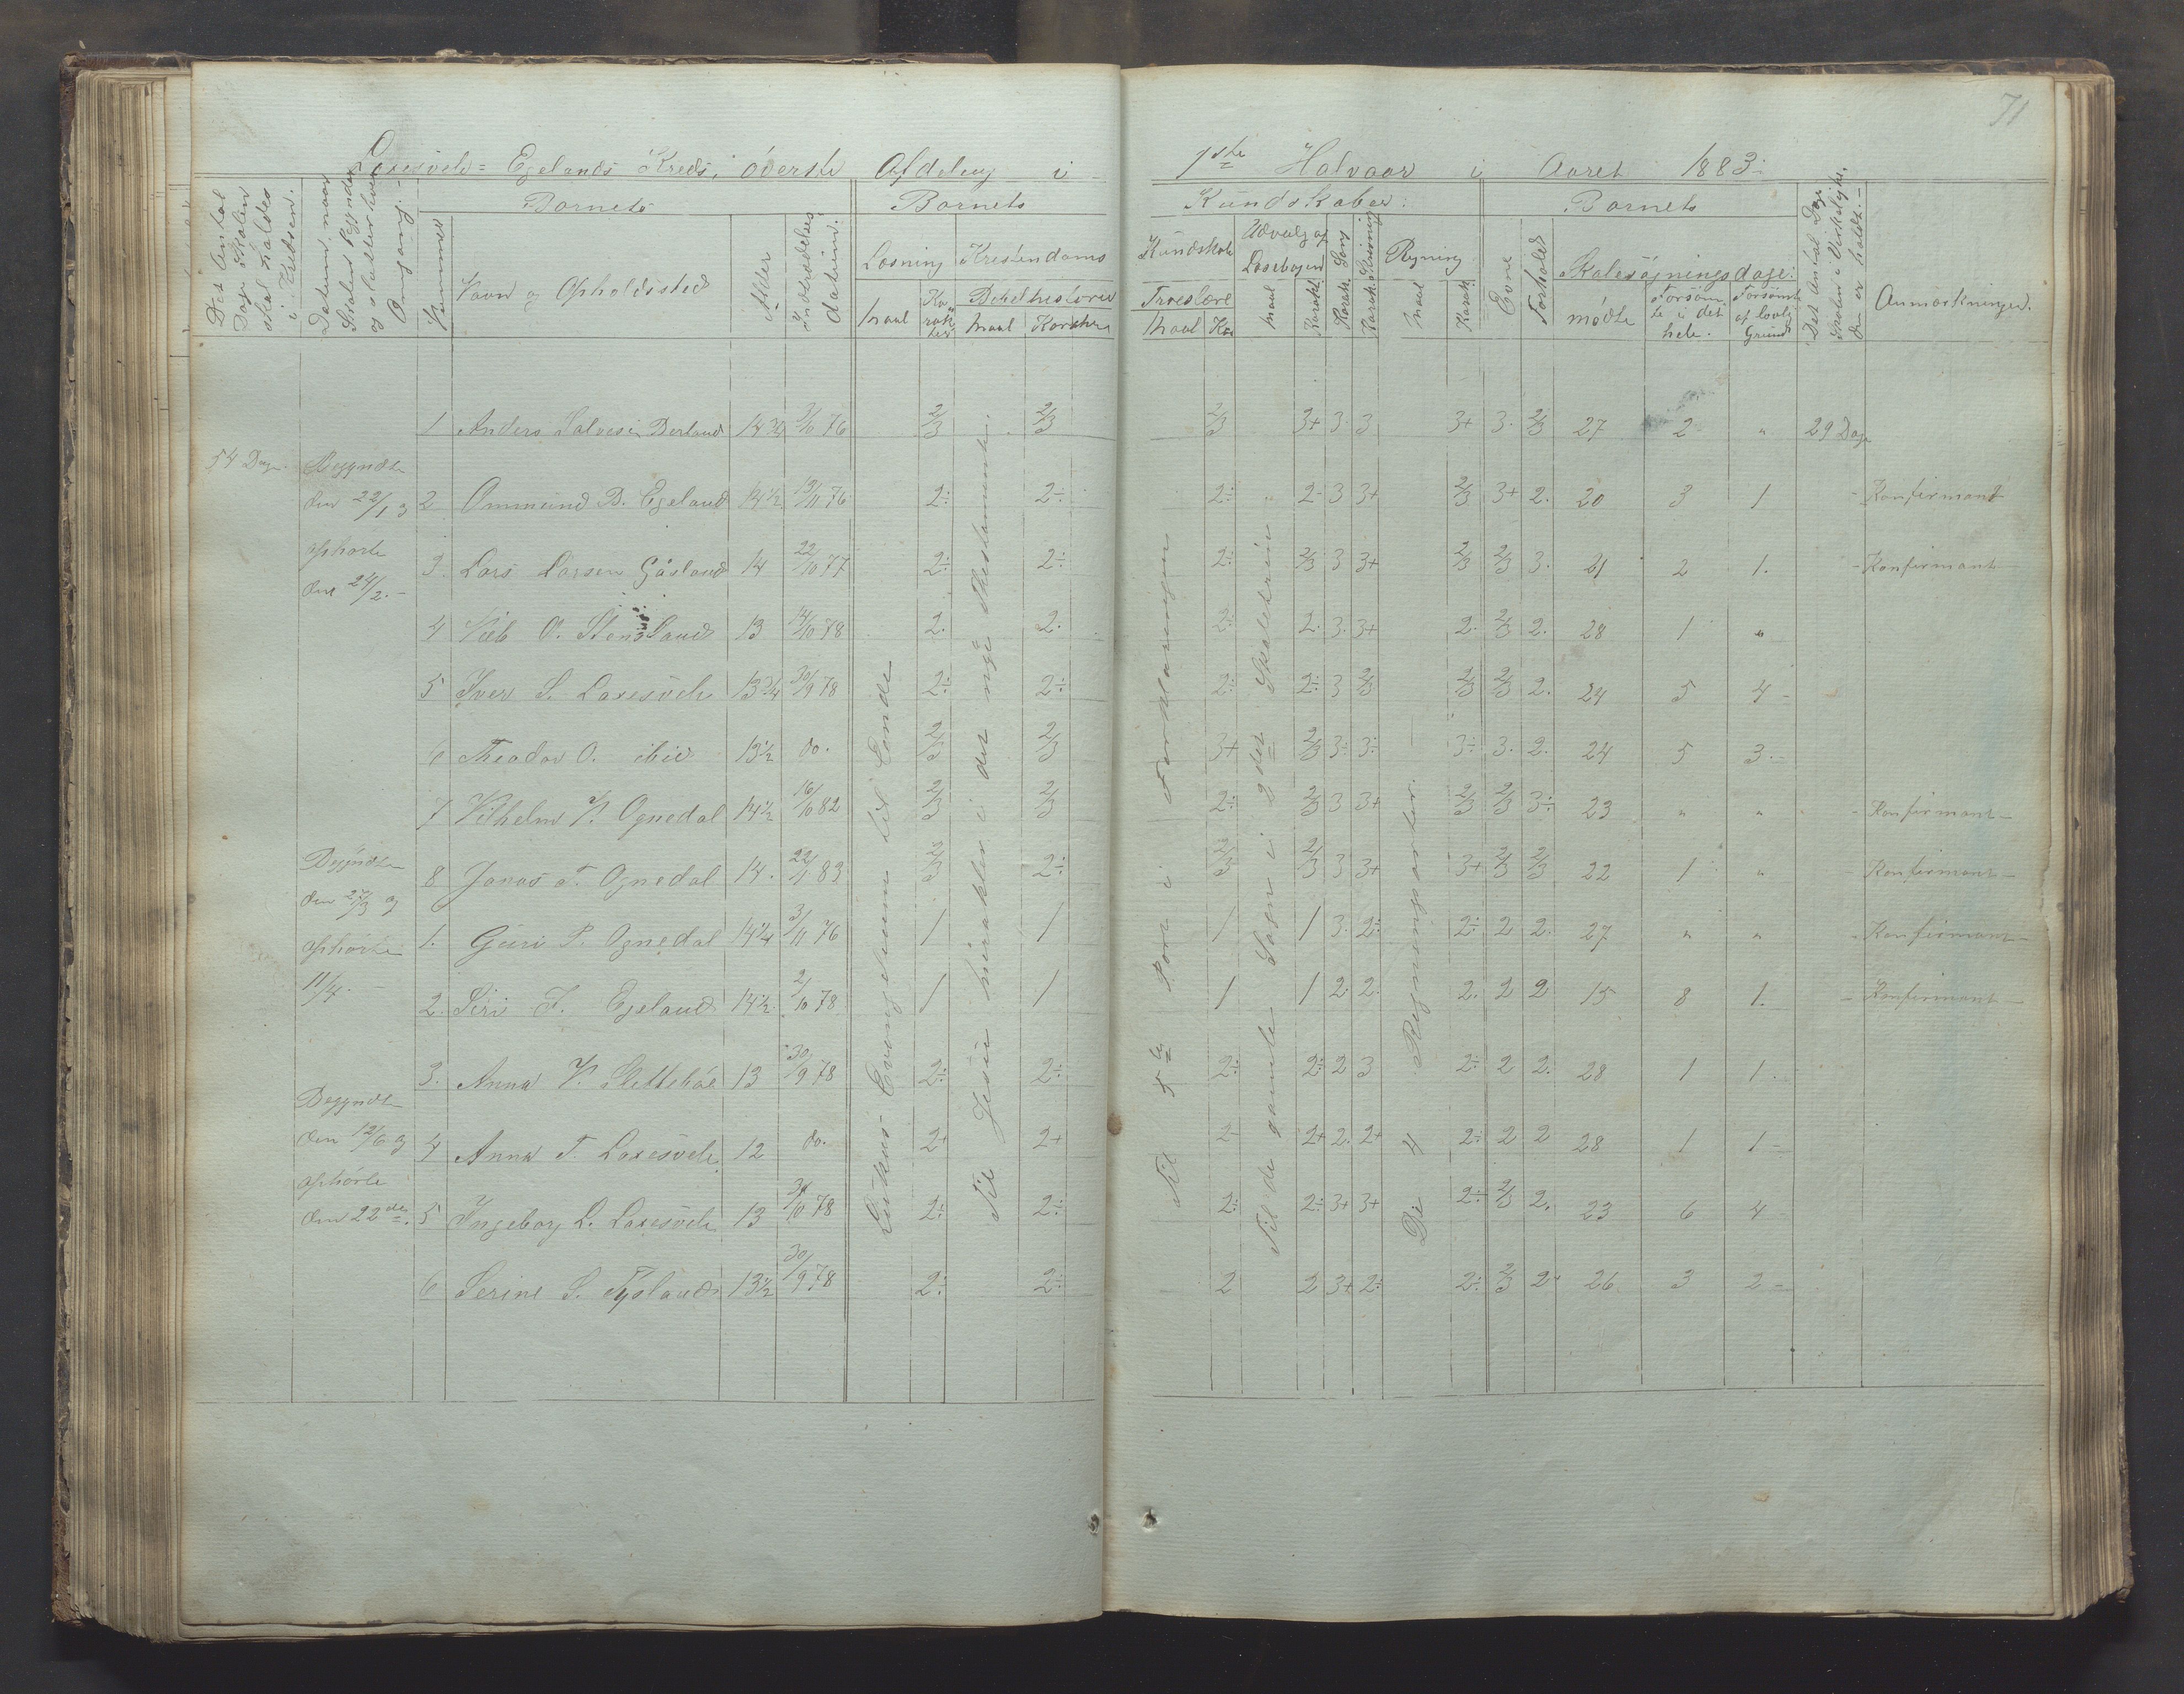 71
Egelands Kreds, överste Afdeling i 1ste Halvaar i Aaret 1883.
Det Antal Dage Skolen skal holdes i Kredsen.
Datum, naar Skolen begynder og slutter hver Omgang.
Nummer
Barnets
Navn og Opholdssted
Alder
Indtrædelses Datum.
Barnets
Læsning
Maal
Karakter
Kristendoms
Bibelhistorie
Maal Karakter
Kundskaber:
Kundskab
Troeslære
Maal Kar
Udvalg af Læsebogen
Maal
Karakt.
Sang
Karak.
Skrivning
Karak.
Regning
Maal
Karak.
Barnets
Evne
Forhold
Skolesøgningsdage:
mødte
Forsømte i det hele.
Forsømt af lovl. Grund
Det Antal Dage Skolen i Virkeligheden er holdt.
Anmærkninger.
54 Dage.
Begyndte
den 22/1 83
ophørte
den 24/2.
Begyndte
den 27/3 og
ophørte
11/4.
Begyndte
den 12/6 og
ophørte
den 22de.
Lukas Evangelium til Ende
Til Jesu mirakler i det nye Thestamente.
Til 5te Part i Forklaringen
Til de gamle Sagn i 2det Skoletrin
De 4 Regningsarter.
1 Anders Salvesen Berland 14 3/4 3/10 76 2/3 2/3 2/3 3+ 3 3 3+ 3. 2/3 27 2 " 29 Dage
2 Ommund B. Egeland 14 1/2 13/11 76 2÷ 2÷ 2÷ 2- 3 3+ 2/3 3+ 2. 20 3 1 - Konfirmant
3. Lars Larsen Gåsland 14 22/10 77 2÷ 2÷ 2÷ 2/3 3 3+ 2/3 2/3 3. 21 2 1. - Konfirmant
4 O. Stensland 13 14/10 78 2. 2. 2÷ 2. 3. 3+ 2. 2/3 2. 28 1 "
5 Iver S. Laxesvele 13 3/4 30/9 78 2÷ 2÷ 2÷ 2÷ 3 2/3 2/3 2/3 2. 24 5 4 -
6 Theodor O. ibid 13 1/2 do. 2/3 2/3 3+ 2/3 3÷ 3÷ 3÷ 3. 2. 24 5 3.-
7 Vilhelm V. Ognedal 14 1/2 16/10 82 2/3 2/3 2÷ 2/3 3 3+ 2/3 2/3 3÷ 23 " " - Konfirmant -
8 Jonas T. Ognedal 14. 22/1 83 2/3 2÷ 2/3 2/3 3 3+ 3+ 2/3 2/3 22 1 " - Konfirmant -
1. Guri P. Ognedal 14 1/4 3/11 76 1 1 1 1 3. 2÷ 2÷ 2 2. 27 " " - Konfirmant -
2. Siri T. Egeland 14 1/2 2/10 78 1 1 1 1 2 2. 2. 2 2 15 8 1. - Konfirmant -
3. Anna V. Slettebøe 13 30/9 78 2÷ 2÷ 2÷ 2÷ 2 3 2÷ 2 2. 28 1 1 -
4 Anna T. Laxesvele. 12 do. 2+ 2+ 2- 2+ 2. 2+ 2÷ 2 2 28 1 1 -
5 Ingeborg L. Laxesvele 13 78 2÷ 2÷ 2÷ 2÷ 3+ 3+ 2÷ 2/3 2. 23 6 4
6 Serine S. Tysland 13 1/2 30/9 78 2÷ 2÷ 2 2 3+ 2÷ 2÷ 2/3 2 26 3 2 -